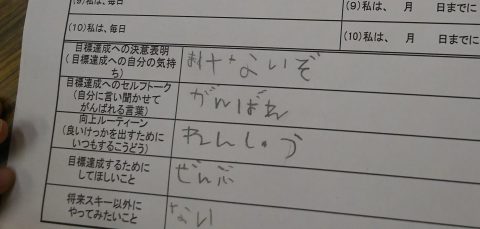 (9)私は、毎日
(9)私は、 月 日までに
(10)私は、毎日
(10)私は、 月 日までに
目標達成への決意表明
(目標達成への自分の気持
ち)
まけないぞ
目標達成へのセルフトーク
(自分に言い聞かせて
がんばれる言葉)
がんばれ
向上ルーティーン
(良いけっかを出すために
いつもするこうどう)
れんしゅう
目標達成するために
してほしいこと
ぜんぶ
将来スキー以外に
やってみたいこと
ない